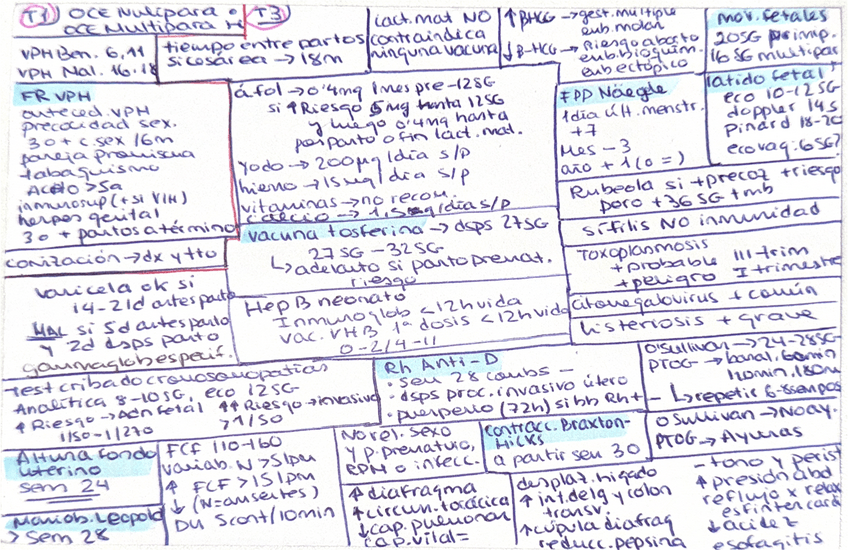 T1) OCE Nulípara o
OCE Multípara H
T3)
VPH Ben. 6,11
VPH Mal. 16,18
tiempo entre partos
si cesárea → 18m
Lact. mat NO
contraindica
ninguna vacuna
↑ BHCG → gest. múltiple
emb. molar
↓ B-HCG → Riesgo aborto
emb. bioquím.
emb ectópico
mov. fetales
20SG primp.
16 SG multipar
FR VPH
anteced. VPH
precocidad sex.
30 + c. sex /6m
pareja promiscua
tabaquismo
ACHO >5a
inmunosup (+ si VIH)
herpes genital
30 + partos a término
conización → dx y tto
áfol → 0'4mg 1 mes pre-12SG
si ↑ Riesgo 5mg hasta 12SG
y luego 0'4mg hasta
posparto o fin lact. mat.
Yodo → 200µg/día s/p
hierro → 15µg/día s/p
vitaminas → no recom.
calcio → 1,5mg/día s/p
FPP Näegle
1 día últ. menstr.
+7
Mes - 3
año + 1 (o =)
latido fetal:
eco 10-12SG
doppler 14S
pinard 18-20
ecovag: 6SG?
Rubeola si + precoz + riesgo
pero +36 SG + mb
Sífilis NO inmunidad
Toxoplasmosis
+ probable III trim
+ peligro I trimestre
citomegalovirus + común
listeriosis + grave
vacuna tosferina → dsps 27SG
27 SG - 32 SG
↳ adelanto si parto premat.
riesgo
varicela ok si
14-21d antes parto
MAL si 5d antes parto
y 2d dsps parto
gammaglob especif.
Hep B neonato
Inmunoglob <12h vida
vac. VHB 1ª dosis <12h vida
0-2/4-11
test cribado cromosomopatías
Analítica 8-10SG, eco 12SG
↑ Riesgo → Adn fetal
1/50-1/270
↑↑ Riesgo → invasivo
>1/50
Rh Anti-D
• sem 28 coombs -
• dsps proc. invasivo útero
• puerperio (72h) si bb Rh+
O'Sullivan → 24-28SG
PTOG → basal. 60min
120min. 180m
↳ repetir 6-8sem pos
O Sullivan → No ay.
PTOG → Ayunas
Altura fondo
uterino
sem 24
Maniob. Leopold
> Sem 28
FCF 110-160
variab. N >5 lpm
↑ FCF >15 lpm
↓ (N=ausentes)
DU 5cont/10min
No rel. sexo
y p. prematuro,
RPM o infecc.
contracc. Braxton-
Hicks
a partir sem 30
↑ diafragma
↑ circun. torácica
↓ cap. pulmonar
cap. vital =
desplaz. hígado
↑ int. delg y colon
transv.
↑ cúpula diafrag
reducc. pepsina
- tono y perist
↑ presión abd
reflujo x relax
esfínter card
↓ acidez
esofagitis